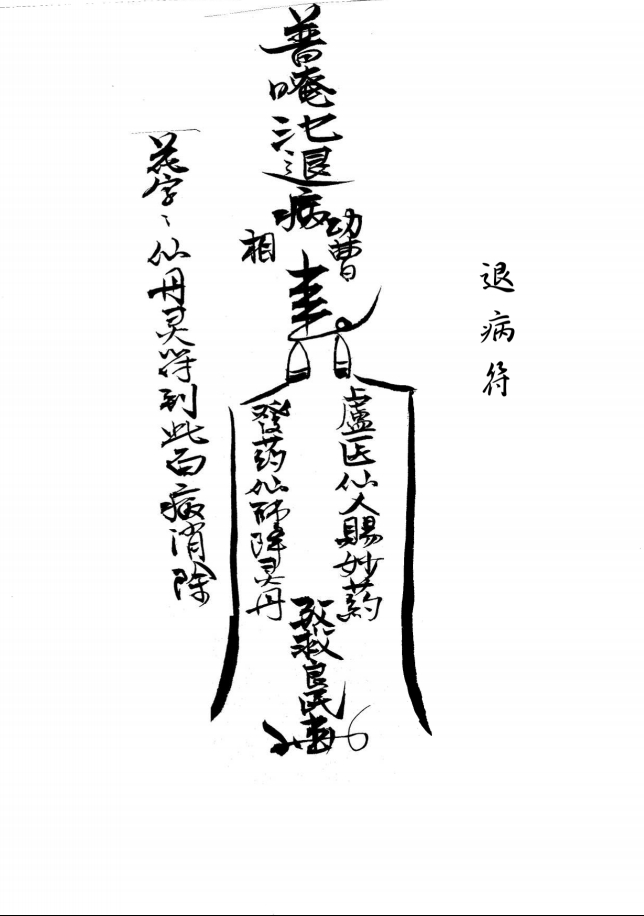 退病符
普唵
退病
功曹
相
盧医仙人賜妙药
发药仙师降灵丹
救良民
花字〻仙丹灵符到此百病消除